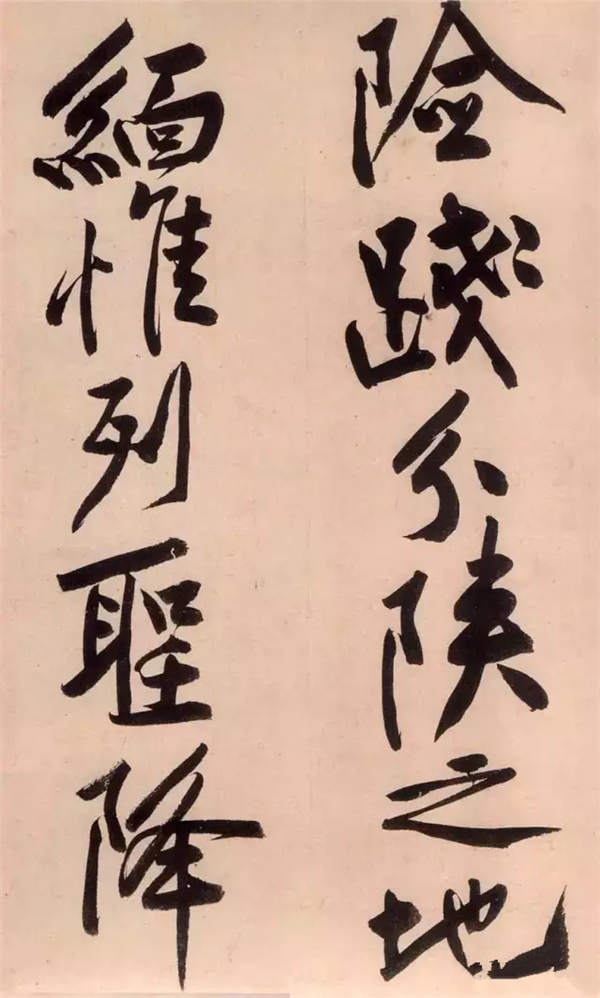 險踐分陝之地
緬惟列聖降